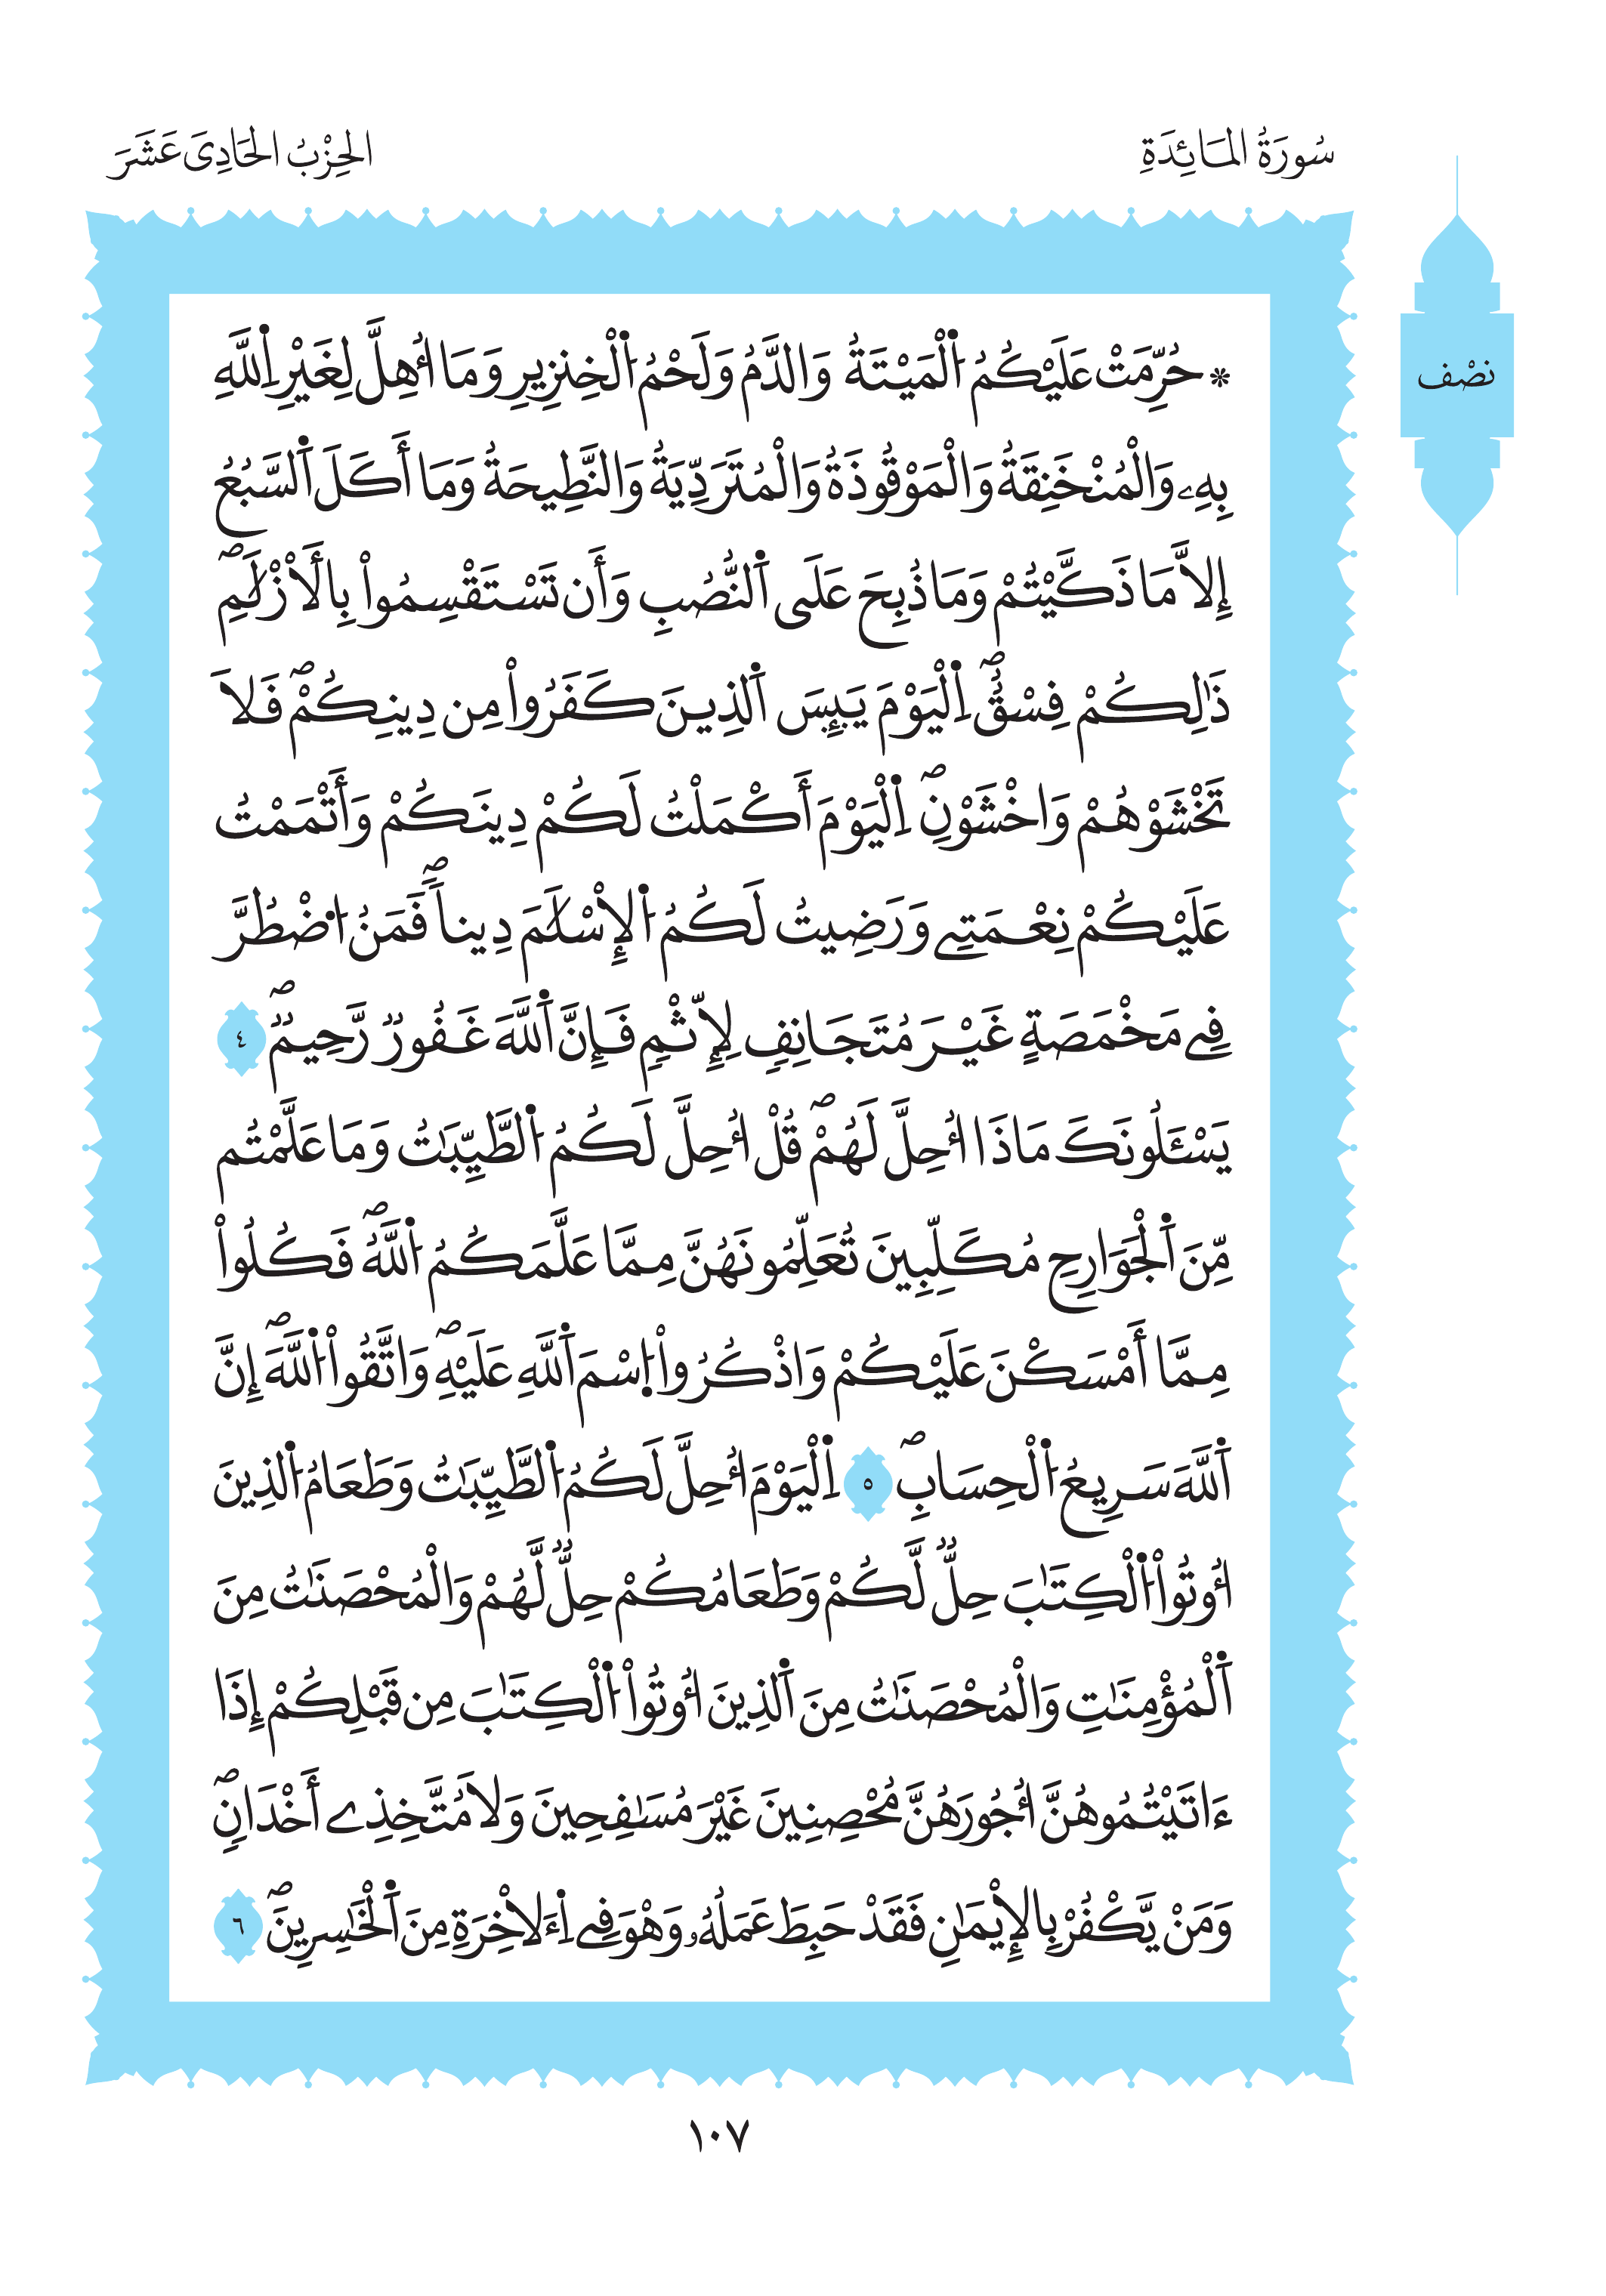 سُورَةُ الْمَائِدَةِ
الْحِزْبُ الْحَادِيَ عَشَرَ
نصْف
* حُرِّمَتْ عَلَيْكُمُ اُ۬لْمَيْتَةُ وَالدَّمُ وَلَحْمُ اُ۬لْخِنزِيرِ وَمَا أُهِلَّ لِغَيْرِ اِ۬للَّهِ
بِهِۦ وَالْمُنْخَنِقَةُ وَالْمَوْقُوذَةُ وَالْمُتَرَدِّيَةُ وَالنَّطِيحَةُ وَمَا أَكَلَ اَ۬لسَّبُعُ
إِلاَّ مَا ذَكَّيْتُمْ وَمَا ذُبِحَ عَلَى اَ۬لنُّصُبِ وَأَن تَسْتَقْسِمُواْ بِالَازْلَٰمِۖ
ذَٰلِكُمْ فِسْقٌۖ اِ۬لْيَوْمَ يَئِسَ اَ۬لذِينَ كَفَرُواْ مِن دِينِكُمْۖ فَلاَ
تَخْشَوْهُمْ وَاخْشَوْنِۖ اِ۬لْيَوْمَ أَكْمَلْتُ لَكُمْ دِينَكُمْ وَأَتْمَمْتُ
عَلَيْكُمْ نِعْمَتِے وَرَضِيتُ لَكُمُ اُ۬لْإِسْلَٰمَ دِيناًۖ فَمَنُ اُ۟ضْطُرَّ
فِے مَخْمَصَةٍ غَيْرَ مُتَجَانِفٍ لِإِثْمٍ فَإِنَّ اَ۬للَّهَ غَفُورٌ رَّحِيمٌۖ ٤
يَسْـَٔلُونَكَ مَاذَا أُحِلَّ لَهُمْۖ قُلْ أُحِلَّ لَكُمُ اُ۬لطَّيِّبَٰتُ وَمَا عَلَّمْتُم
مِّنَ اَ۬لْجَوَارِحِ مُكَلِّبِينَ تُعَلِّمُونَهُنَّ مِمَّا عَلَّمَكُمُ اُ۬للَّهُۖ فَكُلُواْ
مِمَّا أَمْسَكْنَ عَلَيْكُمْ وَاذْكُرُواْ اُ۪سْمَ اَ۬للَّهِ عَلَيْهِۖ وَاتَّقُواْ اُ۬للَّهَۖ إِنَّ
اَ۬للَّهَ سَرِيعُ اُ۬لْحِسَابِۖ ٥ اِ۬لْيَوْمَ أُحِلَّ لَكُمُ اُ۬لطَّيِّبَٰتُ وَطَعَامُ اُ۬لذِينَ
أُوتُواْ اُ۬لْكِتَٰبَ حِلٌّ لَّكُمْ وَطَعَامُكُمْ حِلٌّ لَّهُمْ وَالْمُحْصَنَٰتُ مِنَ
اَ۬لْمُؤْمِنَٰتِ وَالْمُحْصَنَٰتُ مِنَ اَ۬لذِينَ أُوتُواْ اُ۬لْكِتَٰبَ مِن قَبْلِكُمْ إِذَا
ءَاتَيْتُمُوهُنَّ أُجُورَهُنَّ مُحْصِنِينَ غَيْرَ مُسَٰفِحِينَ وَلَا مُتَّخِذِے أَخْدَانٍۖ
وَمَنْ يَّكْفُرْ بِالْإِيمَٰنِ فَقَدْ حَبِطَ عَمَلُهُۥ وَهْوَ فِے اِ۬ءَلاْخِرَةِ مِنَ اَ۬لْخَٰسِرِينَۖ ٦
١٠٧